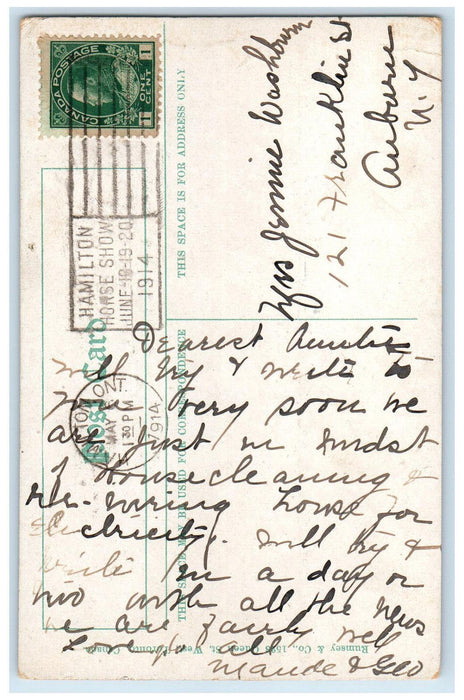 CANADA POSTAGE
1 ONE CENT 1
HAMILTON
HORSE SHOW
JUNE-18-19-20
1914
ONT.
MAY
1 30 PM
1914
Post Card
THIS SPACE MAY BE USED FOR CORRESPONDENCE
THIS SPACE IS FOR ADDRESS ONLY
Mrs Jennie Washburn
121 Franklin St
Auburn
N.Y
Dearest Auntie
Will try & write to
you very soon we
are just in midst
of housecleaning &
re-wiring house for
electricity. Will try &
write in a day or
two with all the news
we are fairly well
Love to all
Maude & Geo
Rumsey & Co., Queen St. West, Toronto, Canada.